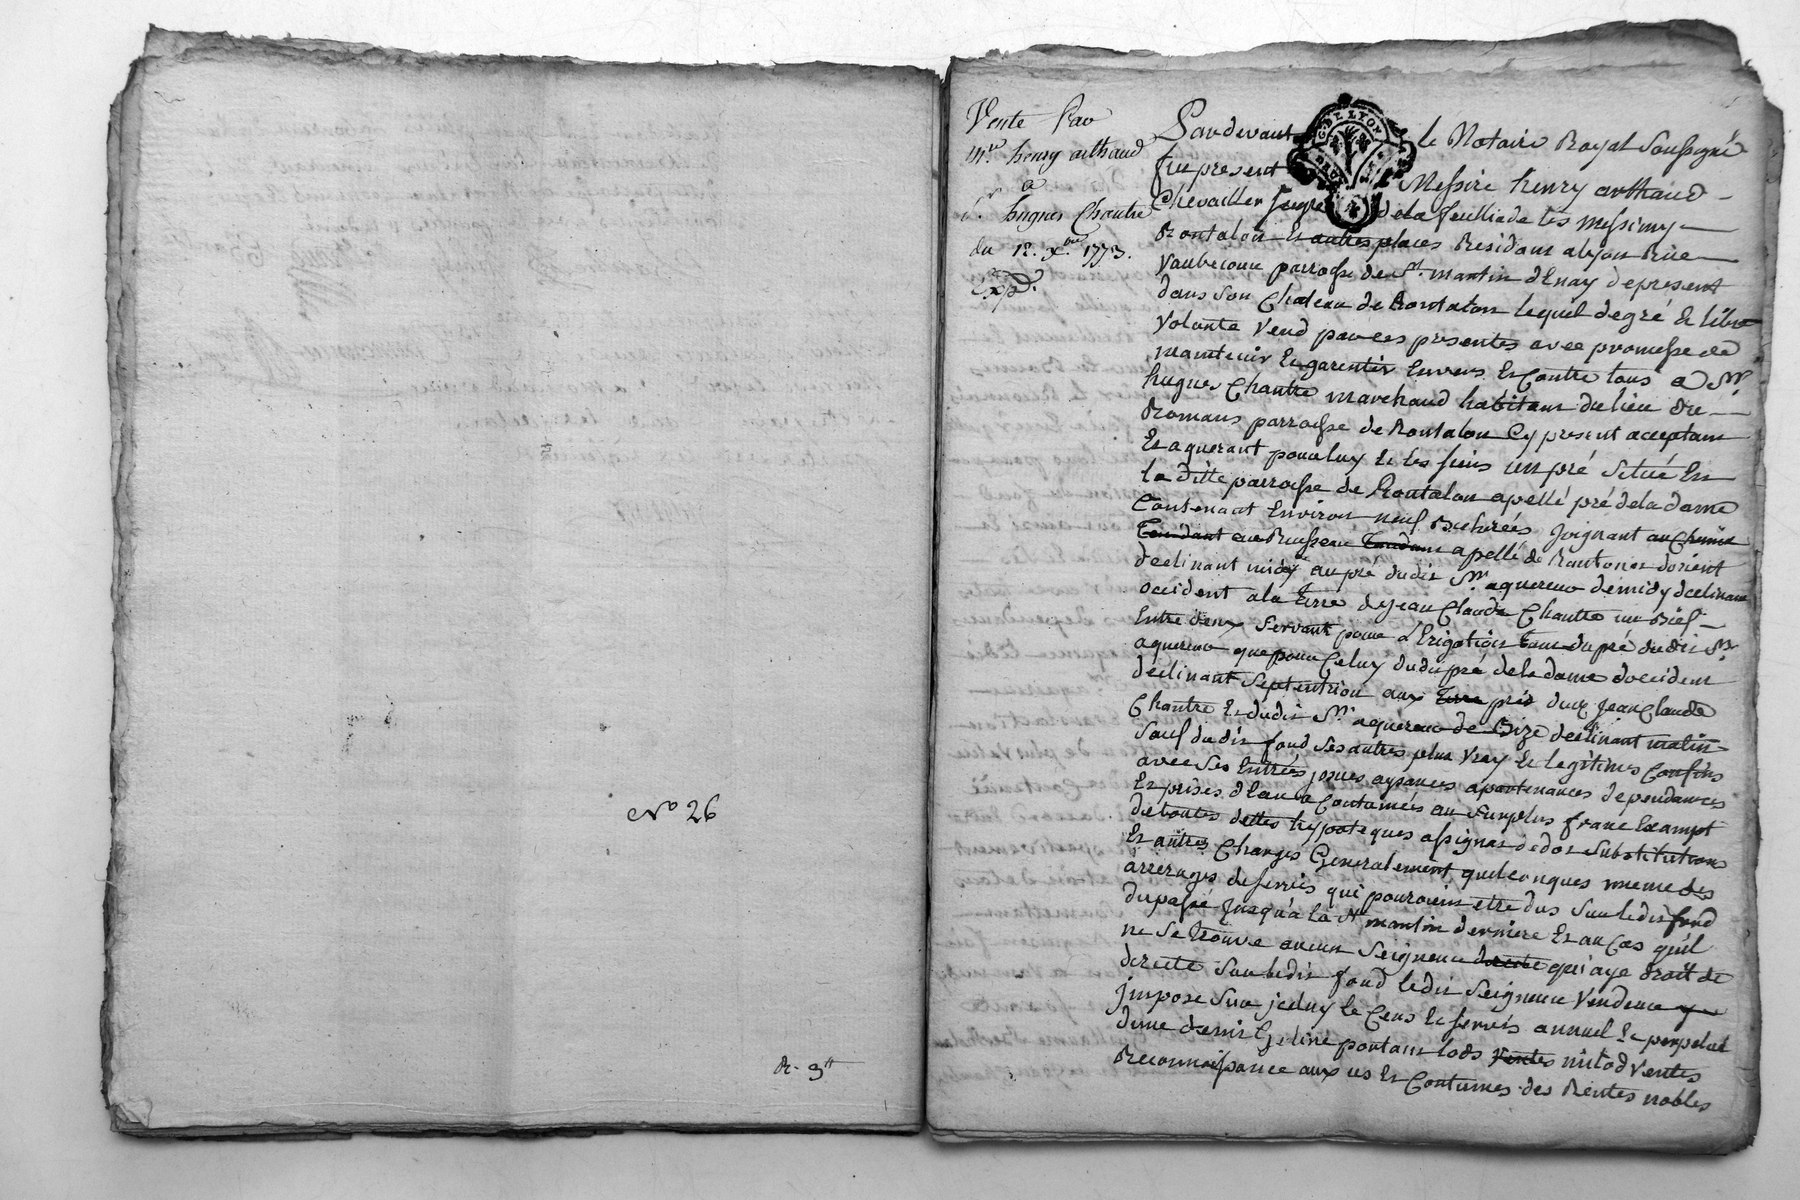 No 26
R. 3tt
Vente Par
Mre henry arthaud
a
Sr hugues Chantre
du 18. xbre 1773.
Expd.
G. DE LYON
Pardevant le Notaire Royal Soussigné
fut present Messire henry arthaud
Chevaillier Seigr de la feulliade les Messimy
Rontalon et autres places Residant a lyon Rue
Vaubecour parroisse de St. martin d'Enay depresent
dans son Chateau de Rontalon lequel de gré et libre
volonté vend par ces presentes avec promesse de
maintenir et garentir Envers et Contre tous a Sr.
hugues Chantre marchand habitant du lieu de
Romans parroisse de Rontalon Cy present acceptant
et aquerant pour luy et les siens un pré situé En
la ditte parroisse de Rontalon apellé pré de la dame
Contenant Environ neuf Bicherées Joignant au Chemin
Tendant au Ruisseau Tendant apellé de Rontonas d'orient
declinant midy au pré dudit Sr. aquereur de midy declinant
occident a la terre de Jean Claude Chantre un Bief
Entre deux servant pour l'Erigation tant du pré dudit Sr.
aquereur que pour Celuy dudit pré de la dame d'occident
declinant Septentrion aux Terre prés dud. Jean Claude
Chantre et dudit Sr. aquereur de Bize declinant matin
Sauf dudit fond Ses autres plus vray et legitimes Confins
avec Ses Entrées issues aysances apartenances dependances
et prises d'Eau a Coutumées au Surplus franc Exampt
de toutes dettes hypoteques assignas de dot Substitution
et autres Charges Generalement quelconques meme des
arrerages de servis qui pouroient etre dus Sur ledit fond
du passé jusqu'à la St martin derniere et au Cas quil
ne se trouve aucun Seigneur directe qui aye droit de
directe Sur ledit fond ledit Seigneur Vendeur y
jmpose Sur jceluy le Cens et servis annuel et perpetuel
d'une demie Geline portant lods ventes milod ventes
Reconnoissance aux us et Coutumes des Rentes nobles